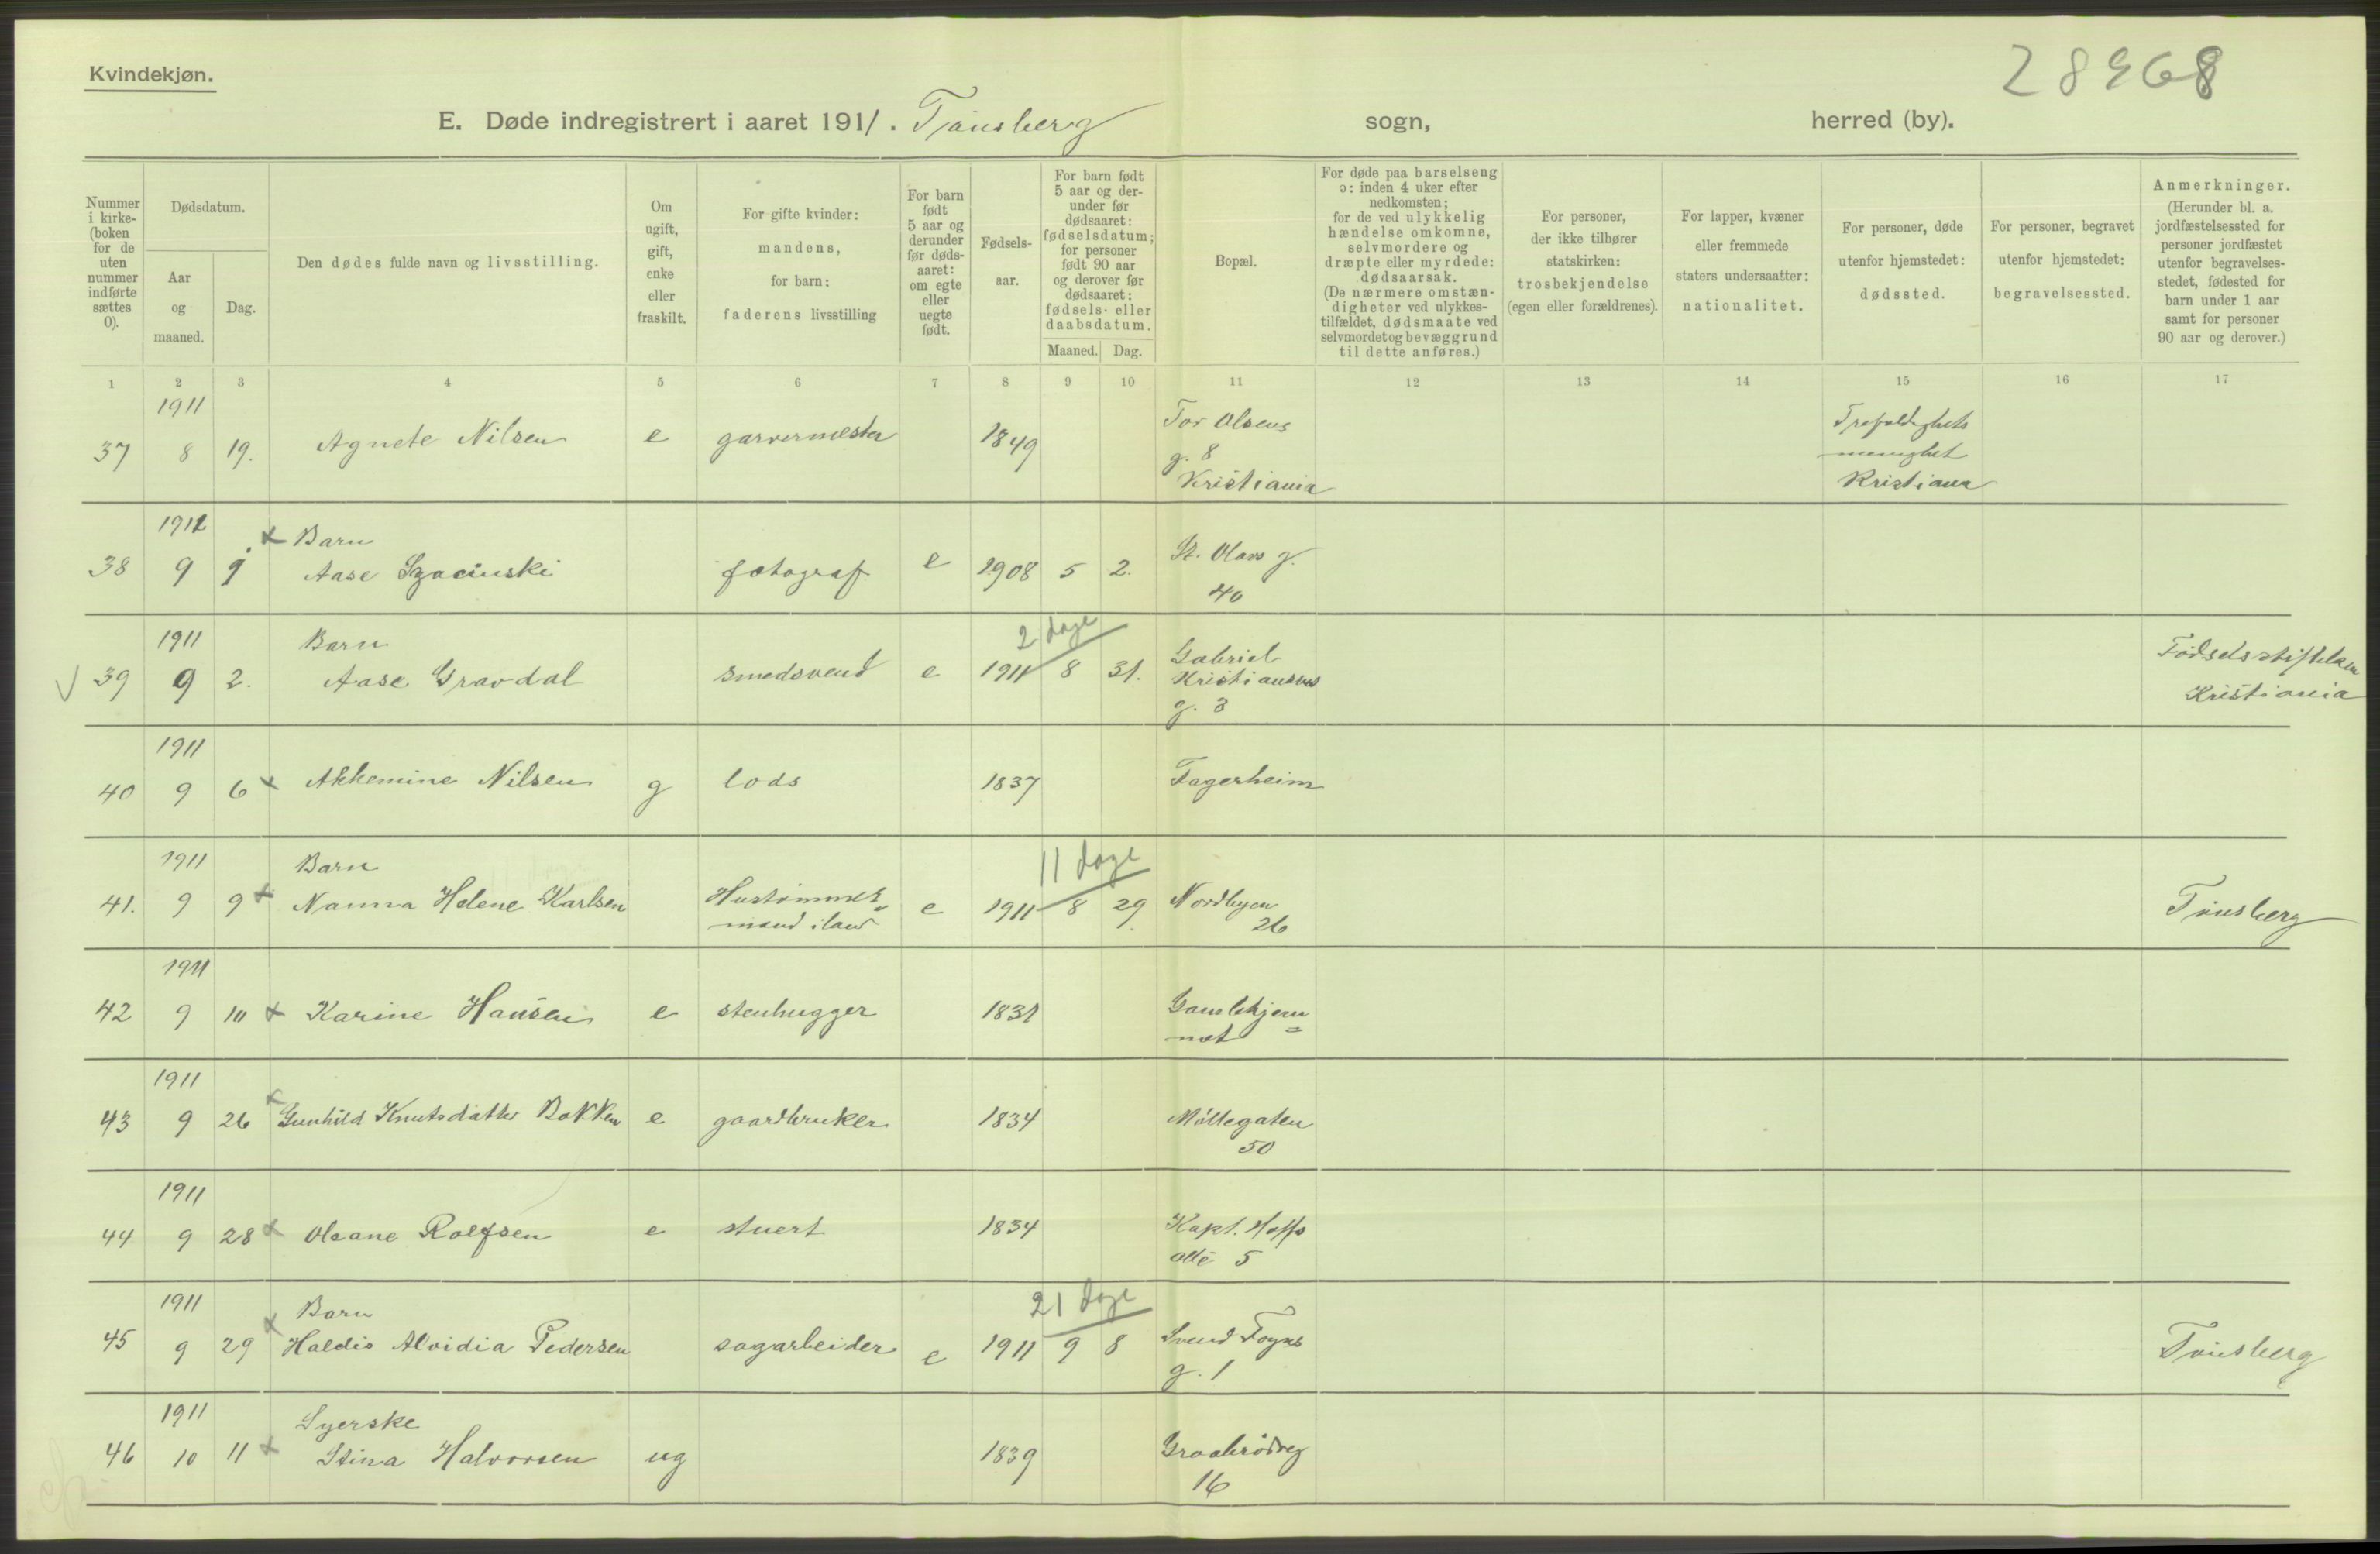 Kvindekjøn.
28968
E. Døde indregistrert i aaret 1911. Tønsberg sogn, herred (by).
Nummer i kirke- (boken for de uten nummer indførte sættes 0).
Dødsdatum.
Aar og maaned.
Dag.
Den dødes fulde navn og livsstilling.
Om ugift, gift, enke eller fraskilt.
For gifte kvinder: mandens, for barn: faderens livsstilling
For barn født 5 aar og derunder før døds-aaret: om egte eller uegte født.
Fødsels-aar.
For barn født 5 aar og der-under før dødsaaret: fødselsdatum; for personer født 90 aar og derover før dødsaaret: fødsels- eller daabsdatum.
Maaned. Dag.
Bopæl.
For døde paa barselseng ɔ: inden 4 uker efter nedkomsten; for de ved ulykkelig hændelse omkomne, selvmordere og dræpte eller myrdede: dødsaarsak. (De nærmere omstæn-digheter ved ulykkes-tilfældet, dødsmaate ved selvmordet og bevæggrund til dette anføres.)
For personer, der ikke tilhører statskirken: trosbekjendelse (egen eller forældrenes).
For lapper, kvæner eller fremmede staters undersaatter: nationalitet.
For personer, døde utenfor hjemstedet: dødssted.
For personer, begravet utenfor hjemstedet: begravelsessted.
Anmerkninger. (Herunder bl. a. jordfæstelsessted for personer jordfæstet utenfor begravelses-stedet, fødested for barn under 1 aar samt for personer 90 aar og derover.)
1 2 3 4 5 6 7 8 9 10 11 12 13 14 15 16 17
1911 Tor Olsens Trefoldigheds
37 8 19. Agnete Nilsen e garvermester 1849 g. 8 menighet
Kristiania Kristiania
1911 x Barn St. Olavs g.
38 9 9 Aase Szacinski fotograf e 1908 5 2. 40
1911 Barn 2 dage Gabriel Fødselsstiftelsen
39 9 2. Aase Gravdal smedsvend e 1911 8 31. Kristiansens Kristiania
g. 3
1911
40 9 6 x Akkemine Nilsen g lods 1837 Fagerheim
1911 Barn 11 dage
41. 9 9 x Nanna Helene Karlsen Hustømmer- e 1911 8 29. Nordbyen Tønsberg
mand i land 26
1911
42 9 10 x Karine Hansen e stenhugger 1831
1911
43 9 26 x Gunhild Knutsdatter Bakken e gaardbruker 1834 Møllegaten
50
1911
44 9 28 x Oleane Rolfsen e stuert 1834 Kapt. Hoffs
allé 5
1911 Barn 21 dage
45 9 29 x Haldis Alvidia Pedersen sagarbeider e 1911 9 8 Svend Foyns Tønsberg
g. 1
1911 Syerske
46 10 11 x Stina Halvorsen ug 1839 Graabrødreg
16